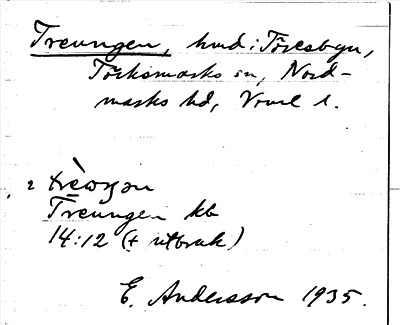 Treungen, hmd i Töresbyn,
Torksmarks sn, Nord-
marks hd, Vrml l.
2 trèω̄ŋən
Treungen kb
14:12 (+ utbruk)
E. Andersson 1935.